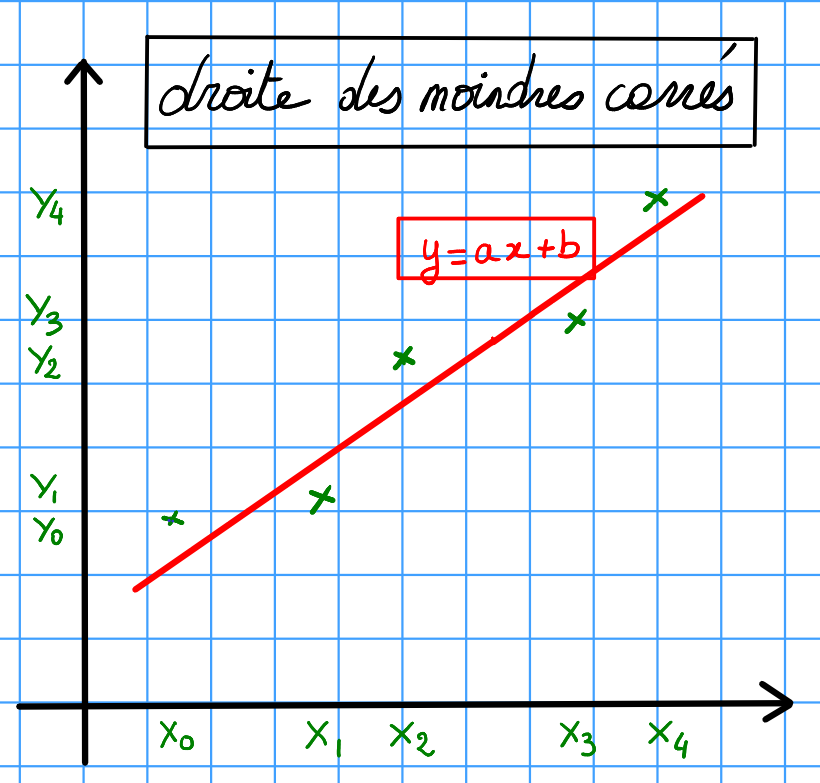 droite des moindres carrés
y=ax+b
Y4
Y3
Y2
Y1
Y0
X0 X1 X2 X3 X4